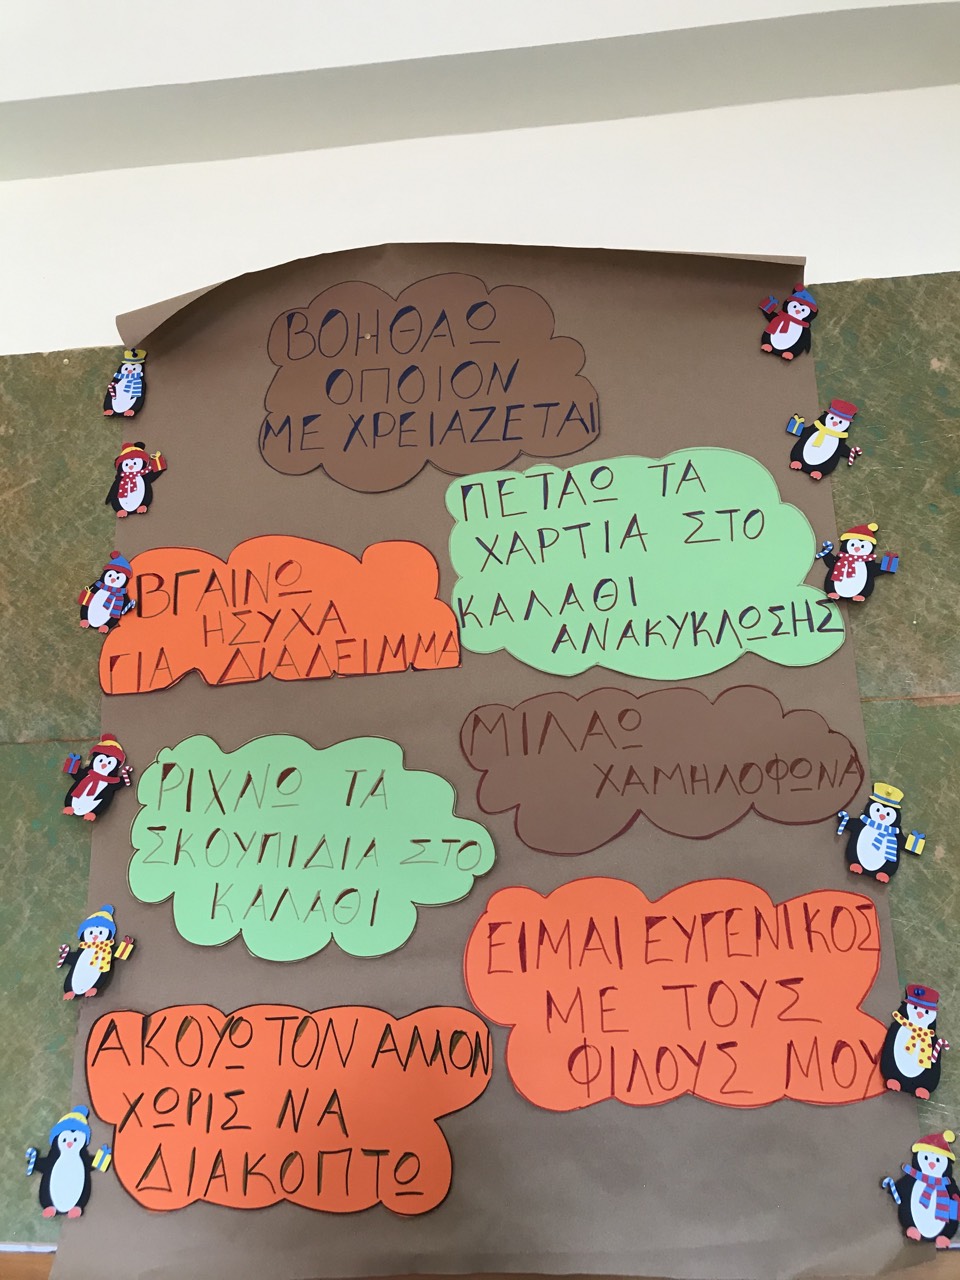 ΒΟΗΘΑΩ
ΟΠΟΙΟΝ
ΜΕ ΧΡΕΙΑΖΕΤΑΙ
ΠΕΤΑΩ ΤΑ
ΧΑΡΤΙΑ ΣΤΟ
ΚΑΛΑΘΙ
ΑΝΑΚΥΚΛΩΣΗΣ
ΒΓΑΙΝΩ
ΗΣΥΧΑ
ΓΙΑ ΔΙΑΛΕΙΜΜΑ
ΜΙΛΑΩ
ΧΑΜΗΛΟΦΩΝΑ
ΡΙΧΝΩ ΤΑ
ΣΚΟΥΠΙΔΙΑ ΣΤΟ
ΚΑΛΑΘΙ
ΕΙΜΑΙ ΕΥΓΕΝΙΚΟΣ
ΜΕ ΤΟΥΣ
ΦΙΛΟΥΣ ΜΟΥ
ΑΚΟΥΩ ΤΟΝ ΑΛΛΟΝ
ΧΩΡΙΣ ΝΑ
ΔΙΑΚΟΠΤΩ